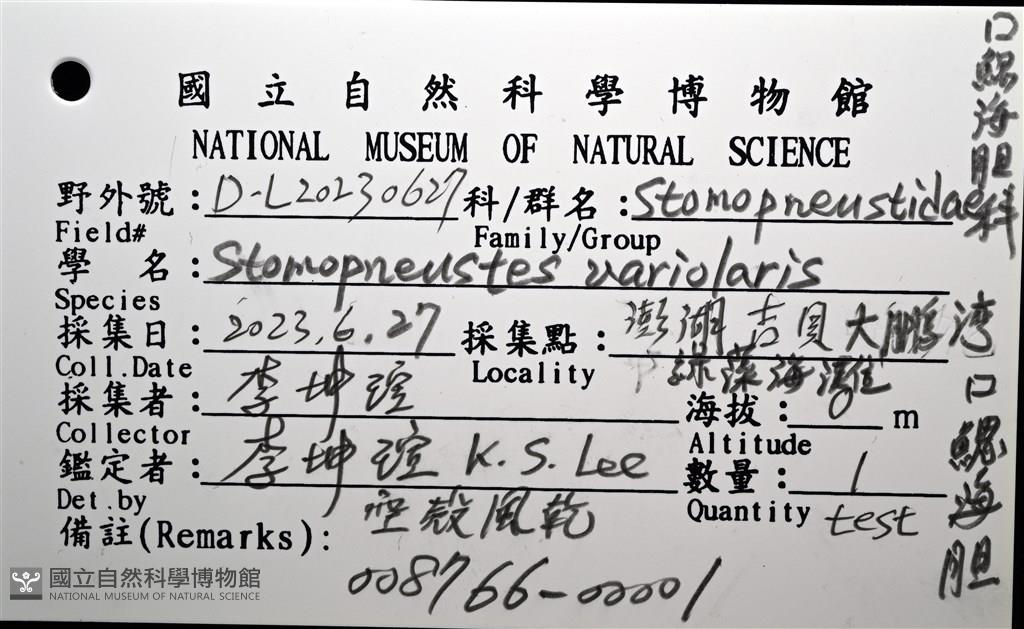 國立自然科學博物館
NATIONAL MUSEUM OF NATURAL SCIENCE
野外號：D-L20230627 科/群名：Stomopneustidae
Field# Family/Group
口鰓海胆科
學 名：Stomopneustes variolaris
Species
採集日：2023.6.27 採集點：澎湖吉貝大鵬湾
綠藻海灘
Coll.Date Locality
採集者：李坤瑄 海拔：0 m
Collector Altitude
鑑定者：李坤瑄 K.S. Lee 數量：1
Det.by Quantity test
口鰓海胆
備註(Remarks)：空殼風乾
008766-00001
國立自然科學博物館
NATIONAL MUSEUM OF NATURAL SCIENCE